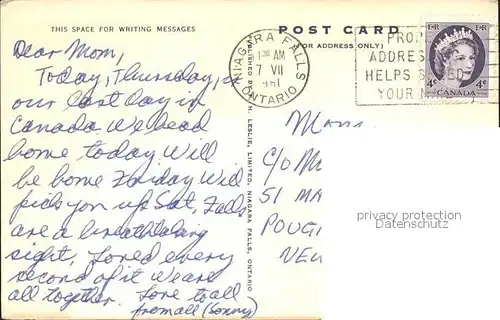 THIS SPACE FOR WRITING MESSAGES
POST CARD
(FOR ADDRESS ONLY)
Dear Mom,
Today, Thursday, is
our last day in
Canada. We head
home today. Will
be home Friday Will
pick you up Sat. Falls
are a breathtaking
sight, Loved every
second of it We are
all together. Love to all
from all (Sonny)
H. LESLIE, LIMITED, NIAGARA FALLS, ONTARIO
NIAGARA FALLS
AM
7 VII
ONTARIO
PROP
ADDRES
HELPS
YOUR
4¢ CANADA 4¢
C/O M
51 MA
POUG
NEW
privacy protection
Datenschutz